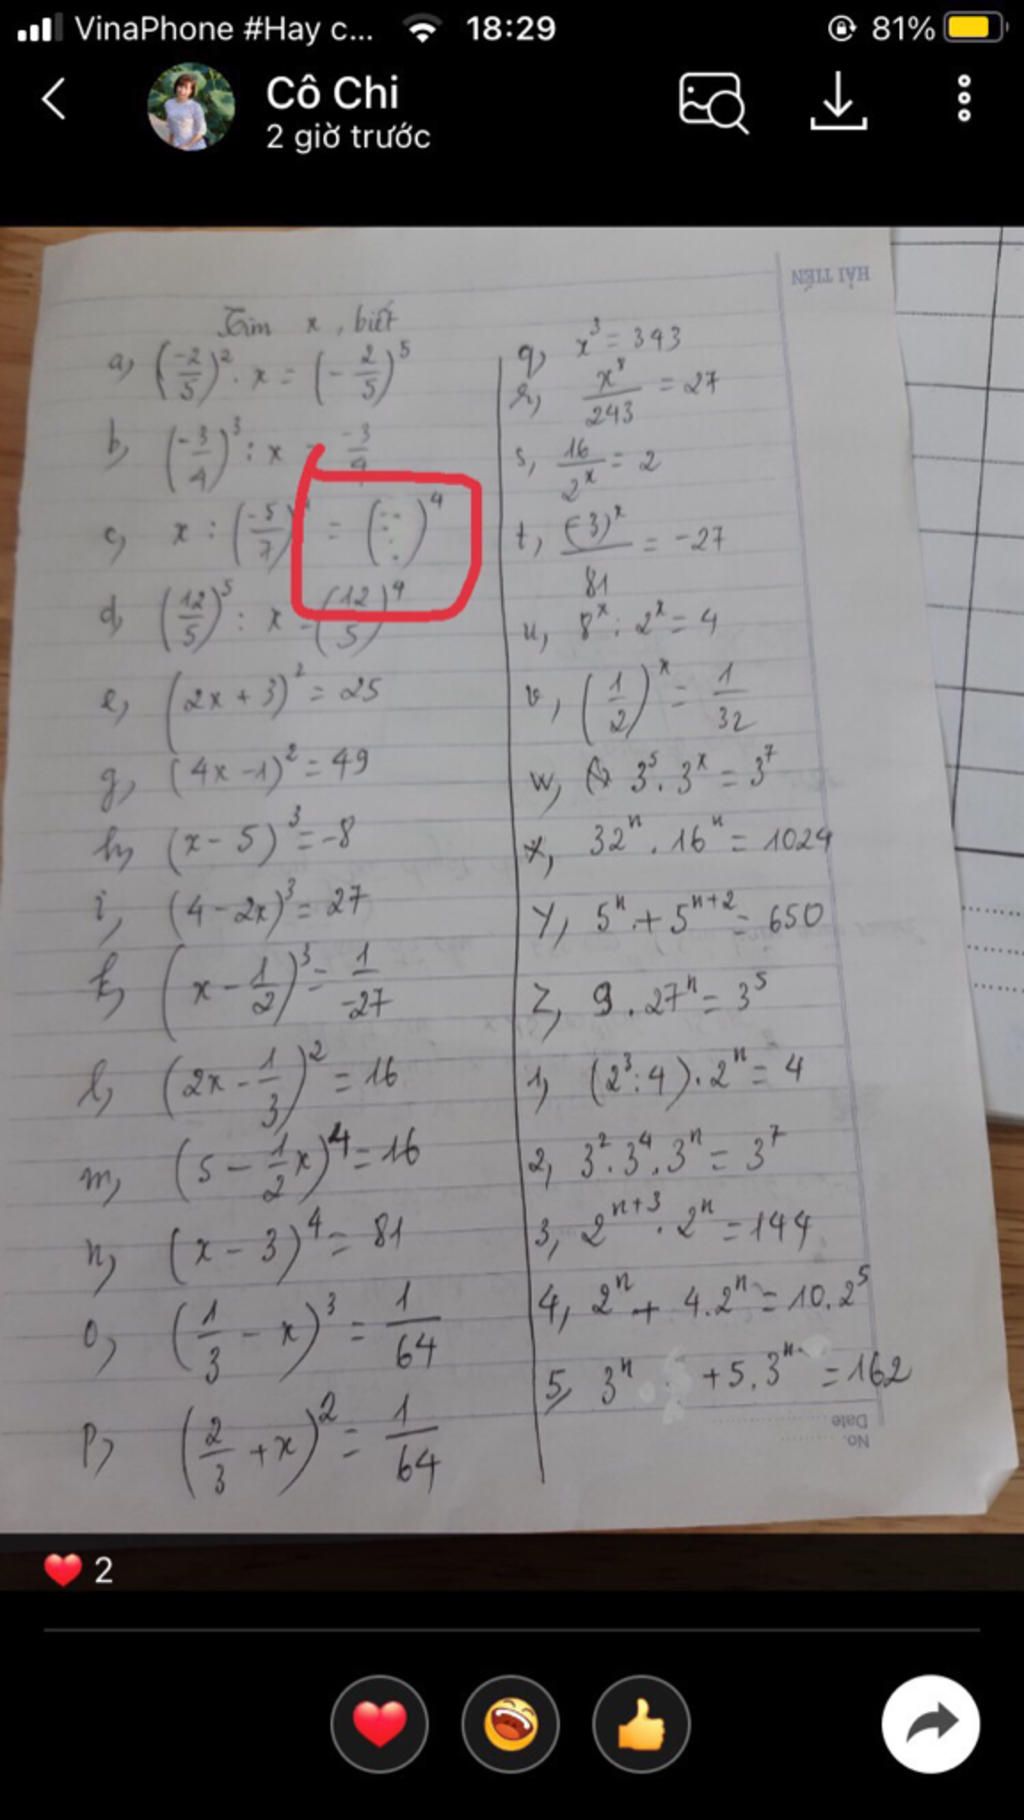 VinaPhone #Hay c... 18:29 81%
Cô Chi
2 giờ trước
HẢI TIẾN
Tìm x, biết
a, (-2/5)^2 . x = (-2/5)^5
b, (-3/4)^3 : x -3/4
c, x : (-5/7) = ( )^4
d, (12/5)^5 : x = (12/5)^4
e, (2x + 3)^2 = 25
g, (4x - 1)^2 = 49
h, (x - 5)^3 = -8
i, (4 - 2x)^3 = 27
k, (x - 1/2)^3 = 1/-27
l, (2x - 1/3)^2 = 16
m, (5 - 1/2 x)^4 = 16
n, (x - 3)^4 = 81
o, (1/3 - x)^3 = 1/64
p, (2/3 + x)^2 = 1/64
q, x^3 = 343
r, x^8/243 = 27
s, 16/2^x = 2
t, (-3)^x/81 = -27
u, 8^x : 2^x = 4
v, (1/2)^x = 1/32
w, 3^5 . 3^x = 3^7
x, 32^n . 16^n = 1024
y, 5^n + 5^n+2 = 650
z, 9 . 27^n = 3^5
1, (2^3 : 4) . 2^n = 4
2, 3^2 . 3^4 . 3^n = 3^7
3, 2^n+3 . 2^n = 144
4, 2^n + 4.2^n = 10.2^5
5, 3^n + 5.3^n = 162
No.
Date
2